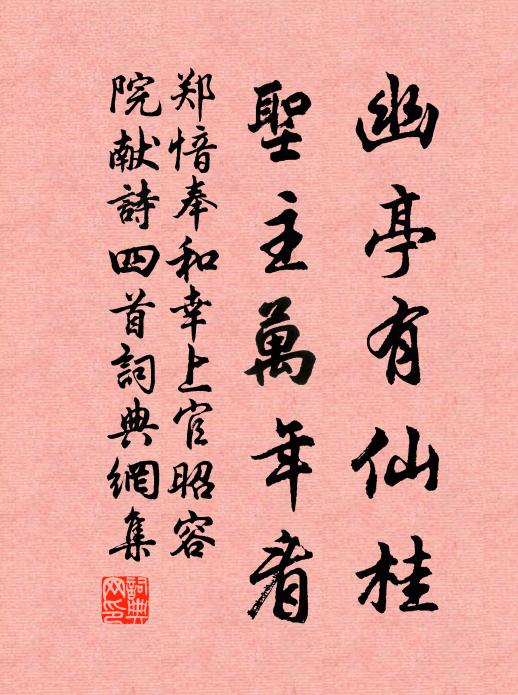 幽亭有仙桂
聖主萬年看
郑愔奉和幸上官昭容
院献詩四首詞典網集
詞典網印